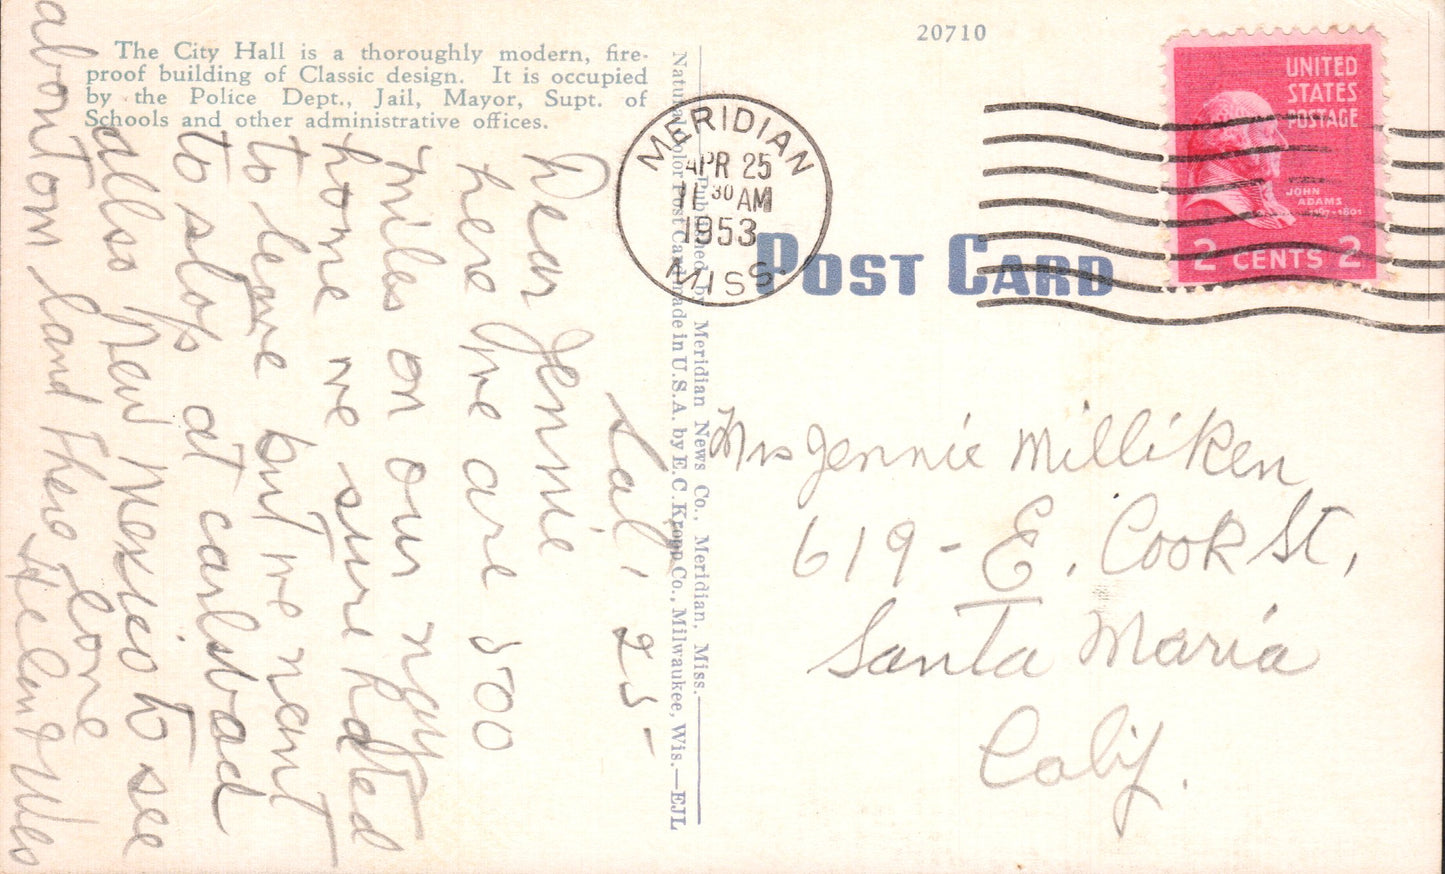 The City Hall is a thoroughly modern, fire-
proof building of Classic design. It is occupied
by the Police Dept., Jail, Mayor, Supt. of
Schools and other administrative offices.
Sat, 25-
Dear Jennie
here we are 500
miles on our way
home we sure hated
to leave but we want
to stop at carlsbad
allso new Mexico to see
about our land there
Love
Helen & Wes
Published by Meridian News Co., Meridian, Miss.
Natural Color Post Card made in U.S.A. by E. C. Kropp Co., Milwaukee, Wis.—EJL
20710
MERIDIAN
APR 25
11 30 AM
1953
MISS.
POST CARD
UNITED
STATES
POSTAGE
JOHN
ADAMS
1797-1801
2 CENTS 2
Mrs Jennie Milliken
619 - E. Cook St,
Santa Maria
Calif.